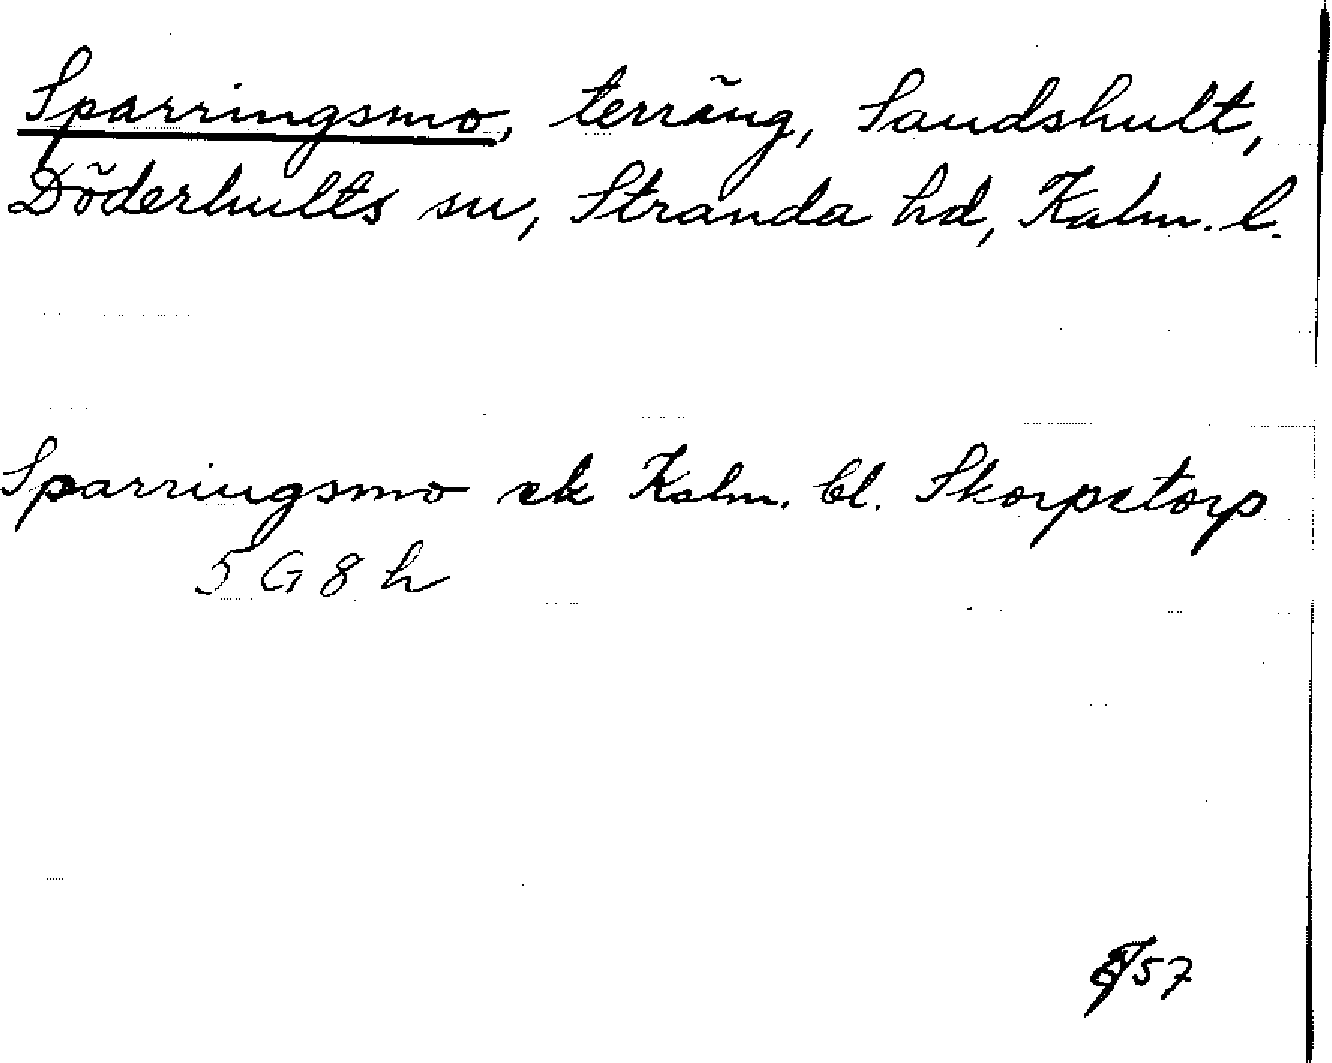 Sparringsmo, terräng, Sandshult,
Döderhults sn, Stranda hd, Kalm. l.
Sparringsmo ek Kalm. bl. Skorpetorp
5 G 8 h
57